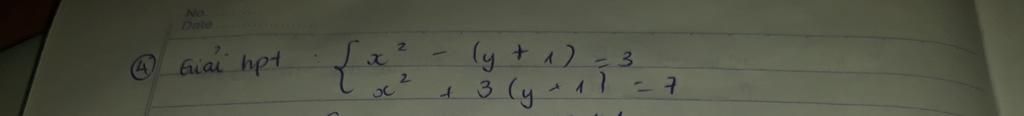 No.
Date
④ Giải hpt : { x² - (y + 1) = 3
x² + 3 (y + 1) = 7